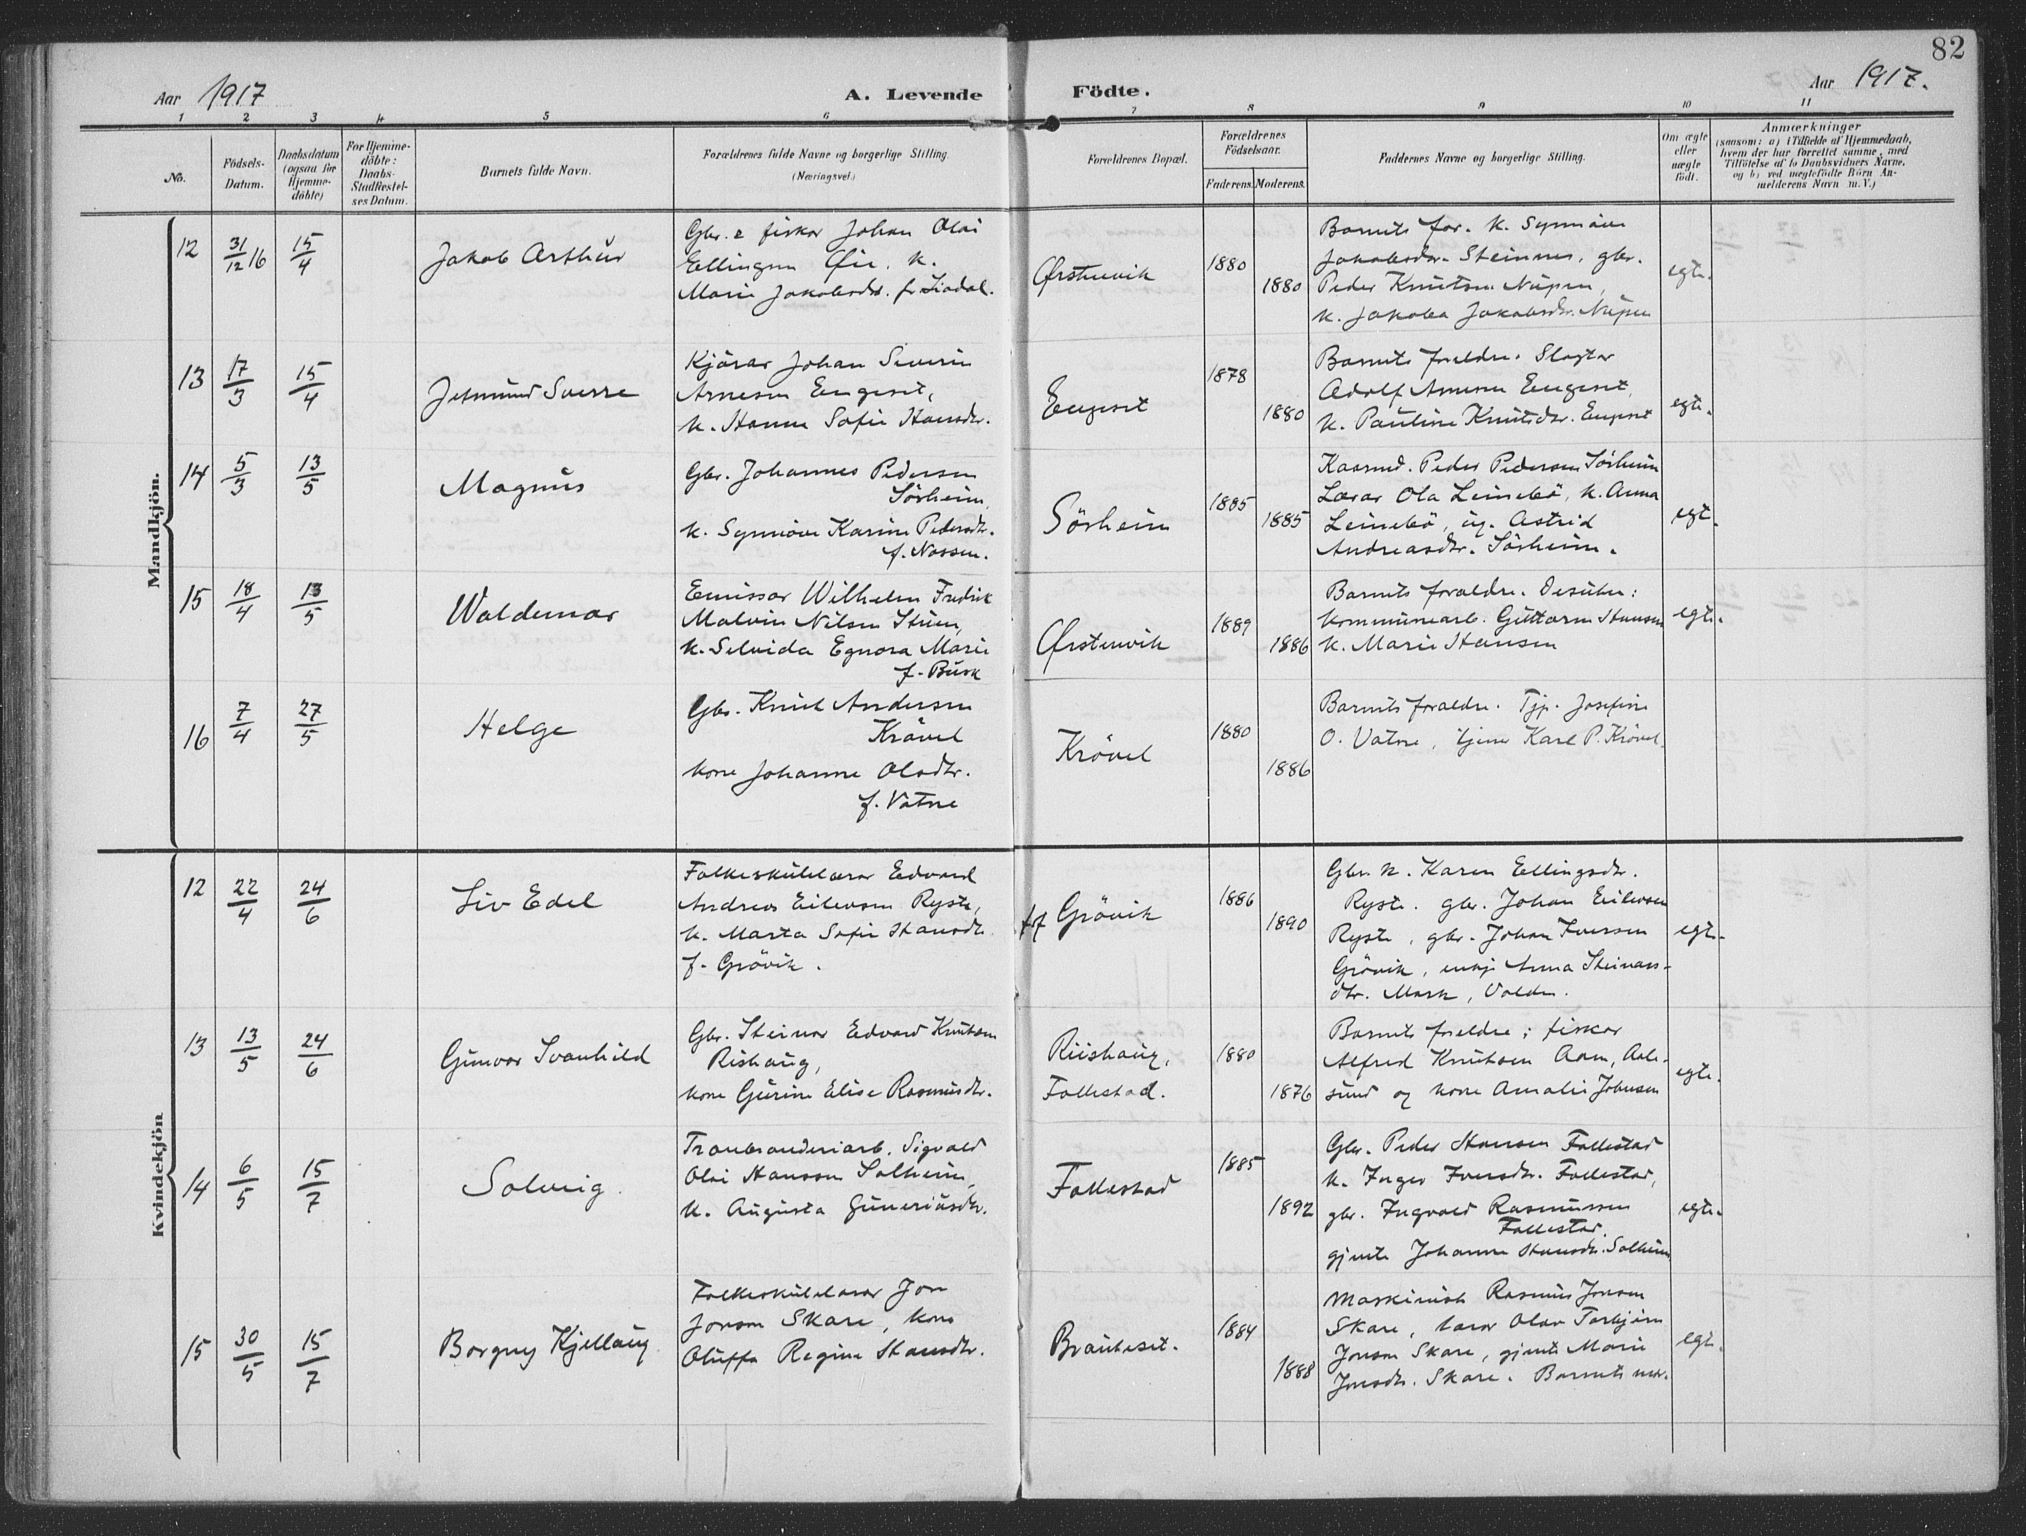 82
Aar 1917
A. Levende
Födte.
Aar 1917.
1 2 3 4 5 6 7 8 9 10 11
No.
Födsels-
Datum.
Daabsdatum
(ogsaa for
Hjemme-
döbte)
For Hjemme-
döbte:
Daabs-
Stadfæstel-
ses Datum.
Barnets fulde Navn.
Forældrenes fulde Navne og borgerlige Stilling.
(Næringsvei.)
Forældrenes Bopæl.
Forældrenes
Födselsaar.
Faderens. Moderens.
Faddernes Navne og borgerlige Stilling.
Om ægte
eller
uægte
födt.
Anmærkninger
(saasom: a) i Tilfælde af Hjemmedaab,
hvem der har forrettet samme, med
Tilföielse af to Daabsvidners Navne,
og b) ved uægtefödte Börn An-
melderens Navn m. V.)
Mandkjön.
12 31/12 16 15/4 Jakob Arthur
Gbr. & fisker Johan Olai
Ellingsen Øie. K.
Marie Jakobsdtr. f. Liadal.
Ørstenvik 1880 1880
Barnets far. K. Synnöve
Jakobsdtr. Steinnes, gbr.
Peder Knutsen Nupen,
K. Jakoba Jakobsdtr. Nupen
egte.
13 17/3 15/4 Jetmund Sverre
Kjörar Johan Severin
Arnesen Engeset,
K. Hanna Sofie Hansdtr.
Engeset 1878 1880
Barnets foreldre. Slagter
Adolf Arnesen Engeset,
K. Pauline Knutsdtr. Engeset
egte.
14 5/3 13/5 Magnus
Gbr. Johannes Pedersen
Sörheim,
K. Synnöve Karine Pedersdtr.
f. Nossen.
Sörheim 1885 1885
Kaarmd. Peder Pedersen Sörheim
Lærar Ola Leinebö, K. Anna
Leinebö, ug. Astrid
Andreasdtr. Sörheim.
egt.
15 18/4 13/5 Waldemar
Emissær Wilhelm Fredrik
Malvin Nilsen Stuen,
K. Selvida Egnora Marie
f. Busk
Ørstenvik 1889 1886
Barnets foraldre. Desuten:
Kommunearb. Guttorm Hansen
K. Marie Hansen
egte.
16 7/4 27/5 Helge
Gbr. Knut Andersen
Krövel
kone Johanne Olsdtr.
f. Vatne
Krövel 1880 1886
Barnets foraldre. Tjp. Josefine
O. Vatne, tjener Karl P. Krövel.
Kvindekjön
12 22/4 24/6 Liv Edel
Folkeskulelærar Edvard
Andreas Eilevsen Ryste,
K. Marta Sofie Hansdtr.
f. Grövik.
Grövik 1886 1890
Gbr. K. Karen Ellingsdtr.
Ryste. gbr. Johan Eilevsen
Ryste, gbr. Johan Iversen
Grövik, Anna Steinars-
dtr. Mork, Volden.
egte.
13 13/5 24/6 Gunvor Svanhild
Gbr. Steinar Edvard Knutsen
Rishaug,
kone Gurine Elise Rasmusdtr.
Riishaug,
Follestad. 1880 1876
Barnets foreldre; fisker
Alfred Knutsen Aam, Aale-
sund og kone Amalie Johnsen
egte.
14 6/5 15/7 Solveig.
Tranbranderiarb. Sigvald
Olai Hansen Solheim,
K. Augusta Guneriusdtr.
Follestad 1885 1892
Gbr. Peder Hansen Follestad
K. Inger Iversdtr. Follestad,
gbr. Ingvald Rasmussen
Follestad.
gjente Johanne Hansdtr. Solheim
egte.
15 30/5 15/7 Borgny Kjellaug
Folkeskulelærar Jon
Jonsen Skare, kone
Oluffa Regine Hansdtr.
Brauteset. 1884 1888
Maskinist Rasmus Jonsen
Skare, lærar Olav Torbjörn
Jonsen Skare, gjente Marie
Jonsdtr. Skare. Barnets mor.
egte.